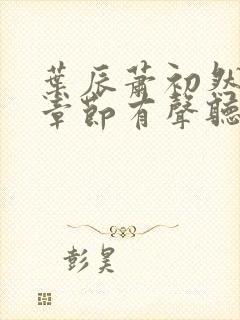 葉辰蕭初然
章節有聲聽
彭昊